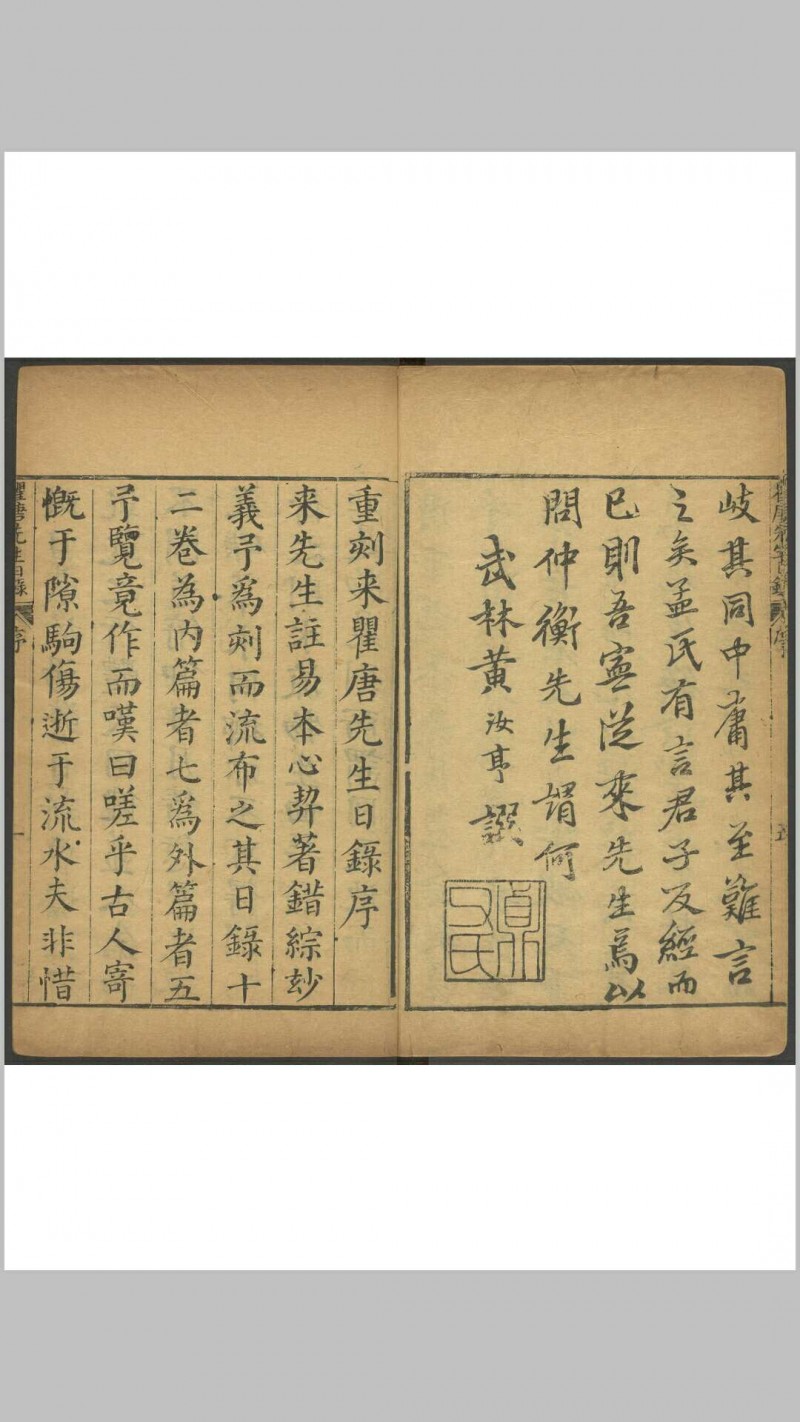 岐其同中庸其至難言
之矣孟氏有言君子反經而
已則吾寧從來先生焉以
問仲衡先生謂何
武林黃汝亭譔
重刻来瞿唐先生日錄序
来先生註易本心契著錯綜玅
義予爲刻而流布之其日錄十
二卷為内篇者七爲外篇者五
予覽竟作而嘆曰嗟乎古人寄
慨于隙駒傷逝于流水夫非惜
瞿唐先生日錄
序
一